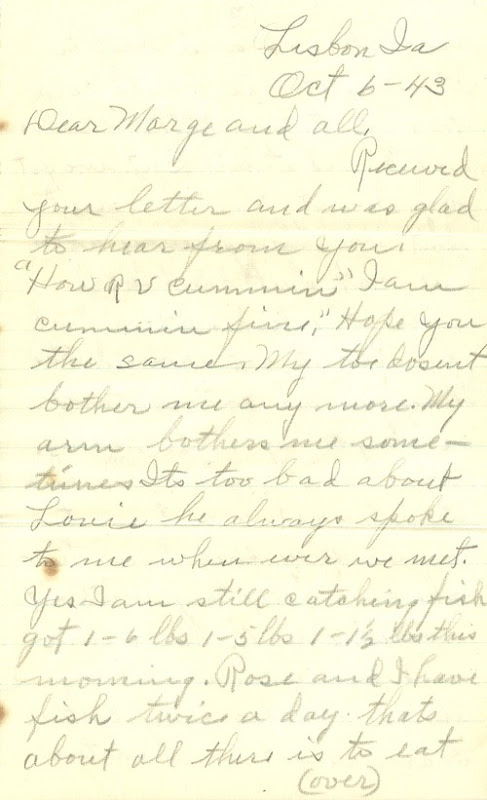 Lisbon Ia
Oct 6-43
Dear Marge and all,
Received
your letter and was glad
to hear from you.
"How R V cummin" I am
cummin fine," Hope you
the same. My toe dosent
bother me any more. My
arm bothers me some-
times Its too bad about
Louie he always spoke
to me when ever we met.
Yes I am still catching fish
got 1-6 lbs 1-5 lbs 1-1½ lbs this
morning. Rose and I have
fish twice a day. thats
about all there is to eat
(over)